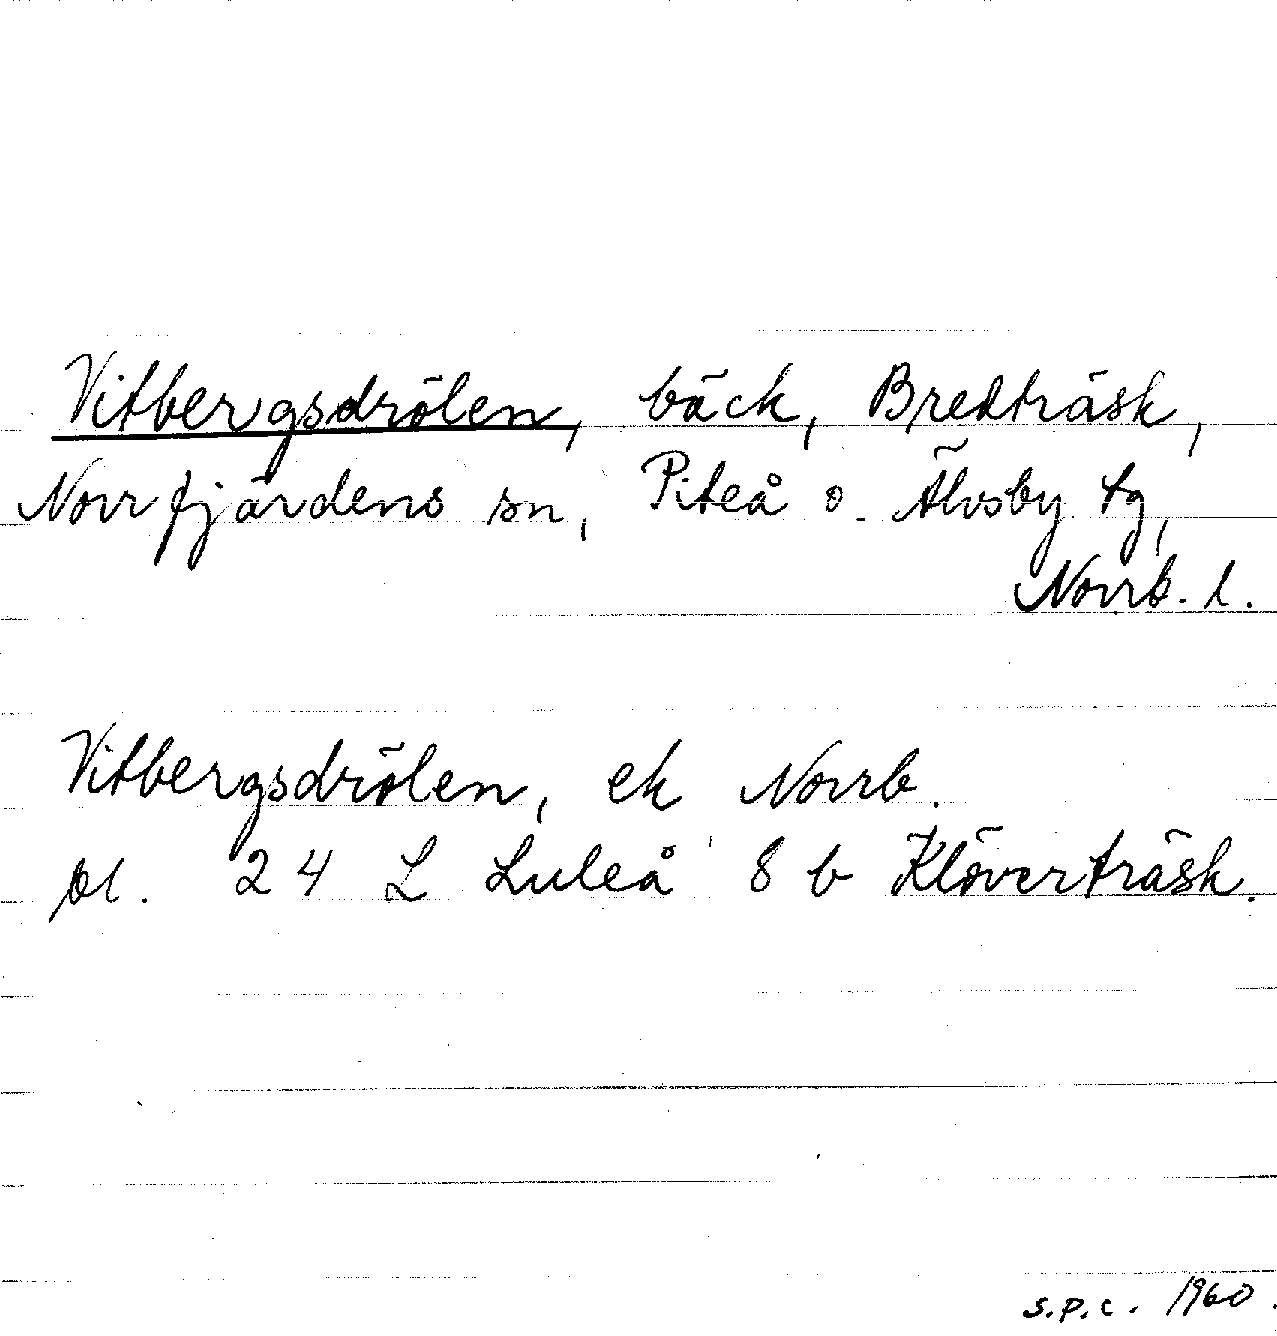 Vitbergsdrölen, bäck, Bredträsk,
Norrfjärdens sn, Piteå o. Älvsby tg,
Norrb. l.
Vitbergsdrölen, ek Norrb.
bl. 24 L Luleå 8 b Klöverträsk.
s.p.c. 1960.